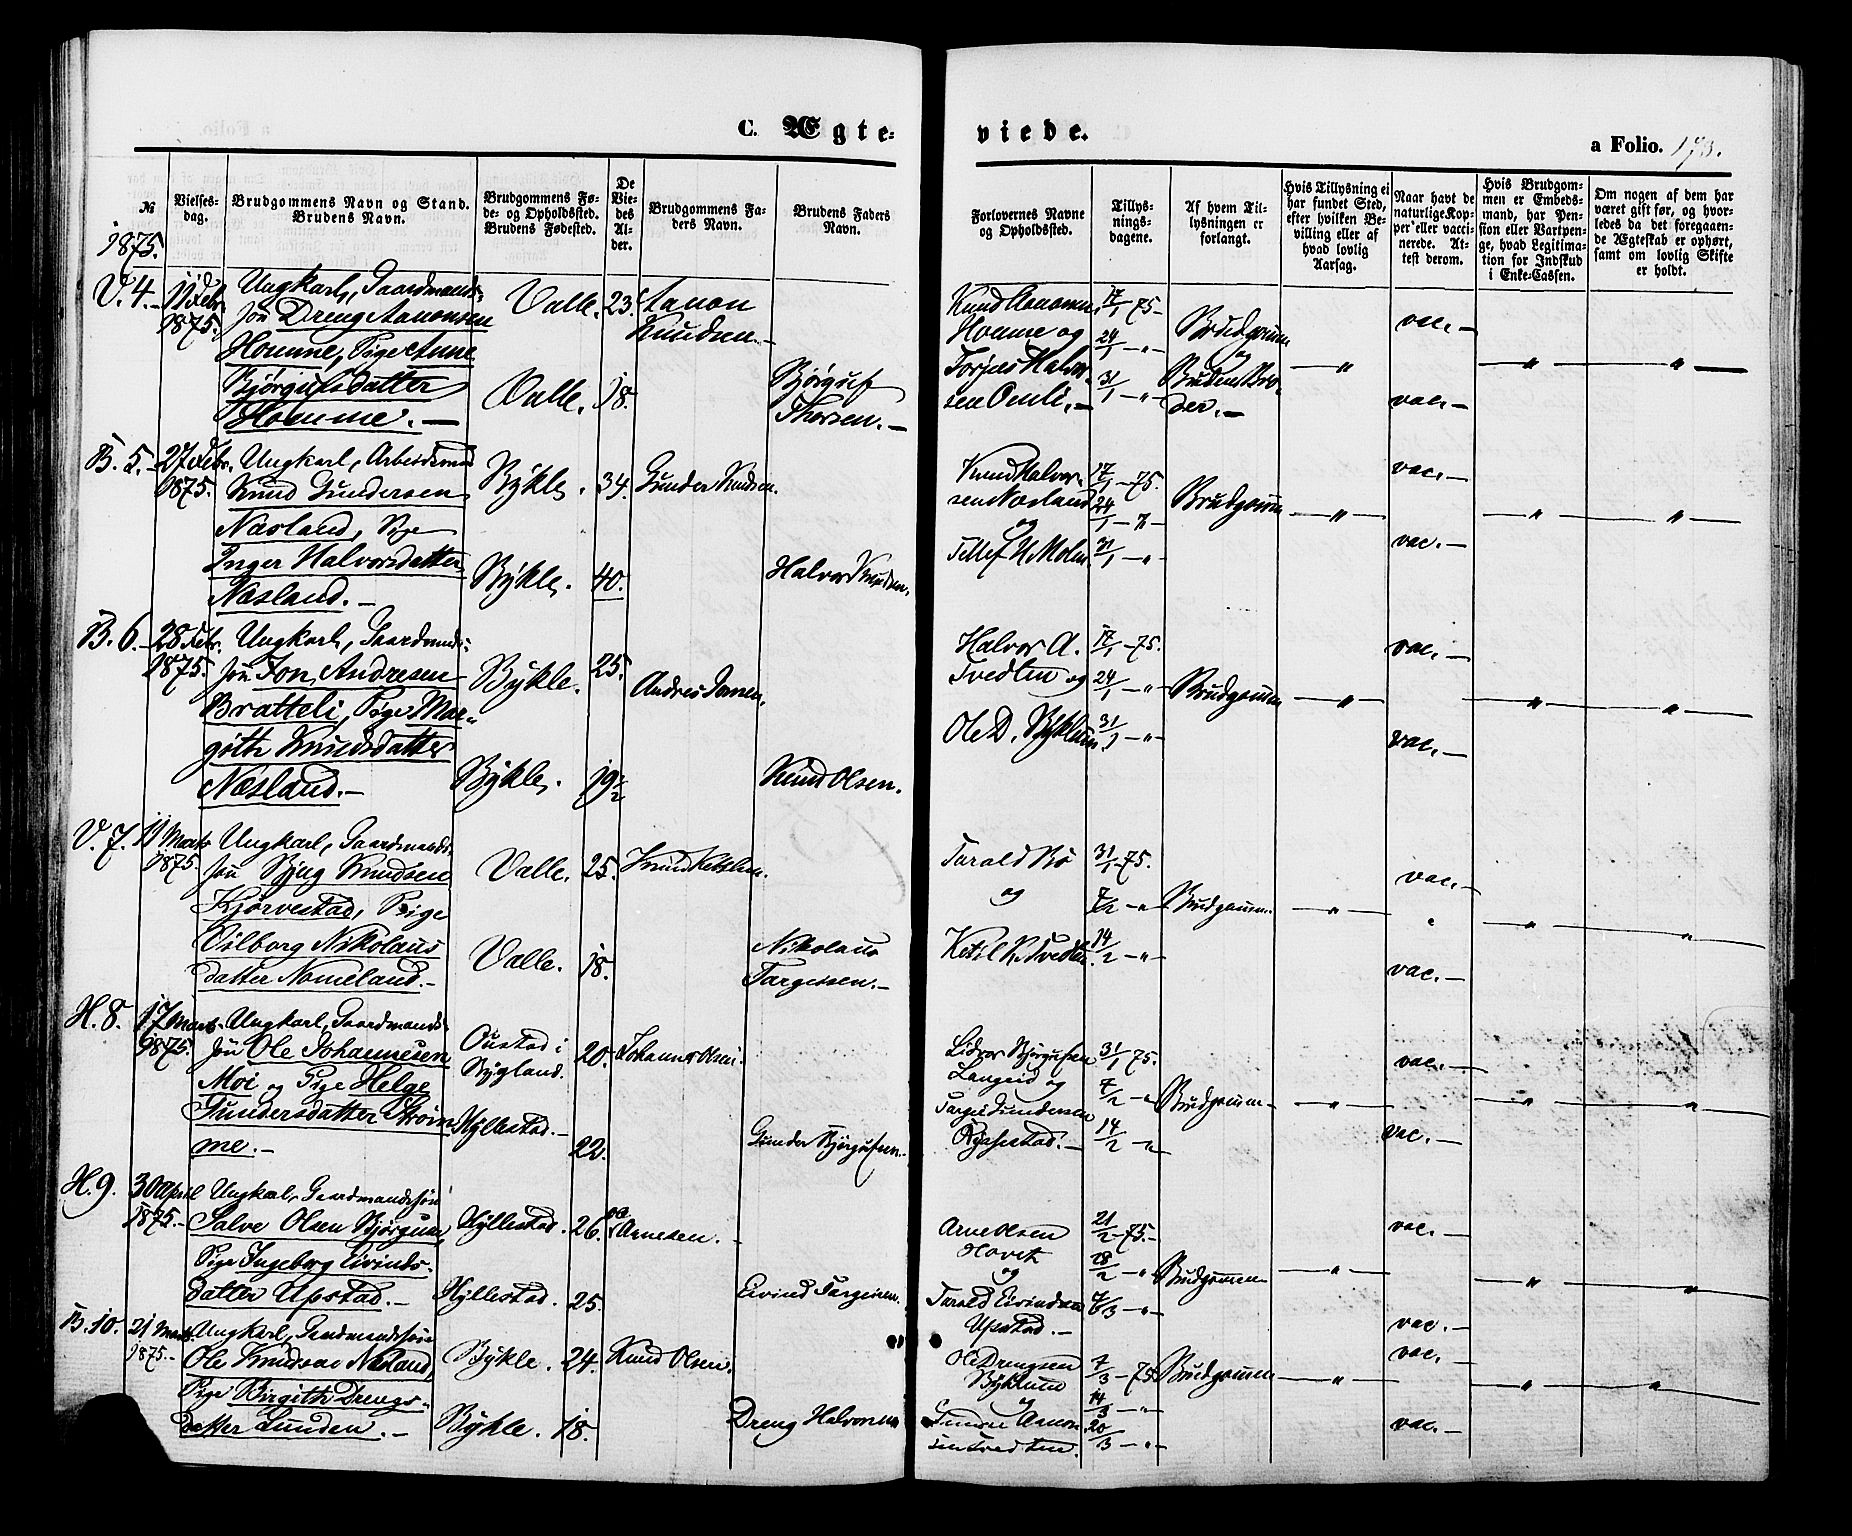 C. Ægte-
viede.
a Folio. 173.
№
Vielses-
dag.
Brudgommens Navn og Stand.
Brudens Navn.
Brudgommens Fø-
de- og Opholdssted.
Brudens Fødested.
De
Vie-
des
Al-
der.
Brudgommens Fa-
ders Navn.
Brudens Faders
Navn.
Forlovernes Navne
og Opholdssted.
Tillys-
nings-
dagene.
Af hvem Til-
lysningen er
forlangt.
Hvis Tillysning ei
har fundet Sted,
efter hvilken Be-
villing eller af
hvad lovlig
Aarsag.
Naar havt de
naturlige Kop-
per eller vacci-
nerede. At-
test derom.
Hvis Brudgom-
men er Embeds-
mand, har Pen-
sion eller Vartpen-
ge, hvad Legitima-
tion for Indskud
i Enke-Cassen.
Om nogen af dem har
været gift før, og hvor-
ledes da det foregaaen-
de Ægteskab er ophørt,
samt om lovlig Skifte
er holdt.
1875.
V. 4. 11 Febr. 1875.
Ungkarl, Gaardmands-
søn Dreng Aanonsen
Homme, Pige Anne
Bjørgufsdatter
Homme. —
Valle. 23. Aanon
Knudsen. —
Valle. 18. Bjørguf
Thorsen. —
Knud Aanonsen
Homme og
Torjus Halvor-
sen Omli. —
17/1 - 75.
24/1 - "
31/1 - "
Brudgommen
og
Brudens Bro-
der. —
— " —
vac. —
vac. —
— " — " —
B. 5. 27 Febr. 1875.
Ungkarl, Arbeidsmand
Knud Gundersen
Næsland, Pige
Inger Halvorsdatter
Næsland. —
Bykle. 34. Gunder Knudsen.
Bykle. 40. Halvor Knudsen.
Knud Halvor-
sen Næsland
og
Tellef N. Molm
17/1 - 75.
24/1 - "
31/1 - "
Brudgommen
— " —
vac. —
vac. —
— " — " —
B. 6. 28 Febr. 1875.
Ungkarl, Gaardmands-
søn Jon Andresen
Bratteli, Pige Mar-
gith Knudsdatter
Næsland. —
Bykle. 25. Andres Jonsen.
Bykle. 19½ Knud Olsen.
Halvor A.
Tvedten og
Ole D. Byklum.
17/1 - 75.
24/1 - "
31/1 - "
Brudgommen
— " —
vac. —
vac. —
— " — " —
V. 7. 11 Marts 1875
Ungkarl, Gaardmands-
søn Bjug Knudsen
Kjørvestad, Pige
Vilborg Nikolaus
datter Nomeland. —
Valle. 25. Knud Ketilsen.
Valle. 18. Nikolaus
Targessen. —
Tarald Bø
og
Ketil K. Tvedten.
31/1 - 75.
7/2 - "
14/2 - "
Brudgommen
— " —
vac. —
vac. —
— " — " —
H. 8. 17 Marts 1875.
Ungkarl, Gaardmands-
søn Ole Johannesen
Moi og Pige Helge
Gundersdatter Strøm-
me. —
Oustad i
Bygland. 20. Johannes Olsen.
Hyllestad. — 22. Gunder Bjørgufsen.
Lidvor Bjørgufsen
Langeid og
Targei Gundersen
Rysstad. —
31/1 - 75.
7/2 - "
14/2 - "
Brudgommen
— " —
vac. —
vac. —
— " — " —
H. 9. 30 April 1875. —
Ungkarl, Gaardmandssøn
Salve Olsen Bjørgum,
Pige Ingeborg Eivinds-
datter Upstad. —
Hyllestad. 26. Arnesen. —
Hyllestad. 25. Eivind Targeisen.
Arne Olsen
Hovet
og
Tarald Eivindsen
Upstad. —
21/2 - 75.
28/2 - "
7/3 - "
Brudgommen
— " —
vac. —
vac. —
— " — " —
B. 10. 21 Marts 1875. —
Ungkarl, Gaardmandssøn
Ole Knudsen Næsland,
Pige Birgith Drengs-
datter Lunden. —
Bykle. 24. Knud Olsen.
Bykle. 18. Dreng Halvorsen
Ole Drengsen
Byklum
og
Gunder Aanon-
sen Tvedten.
7/3 - 75
14/3 - "
20/3 - "
Brudgommen
— " —
vac. —
vac. —
— " — " —